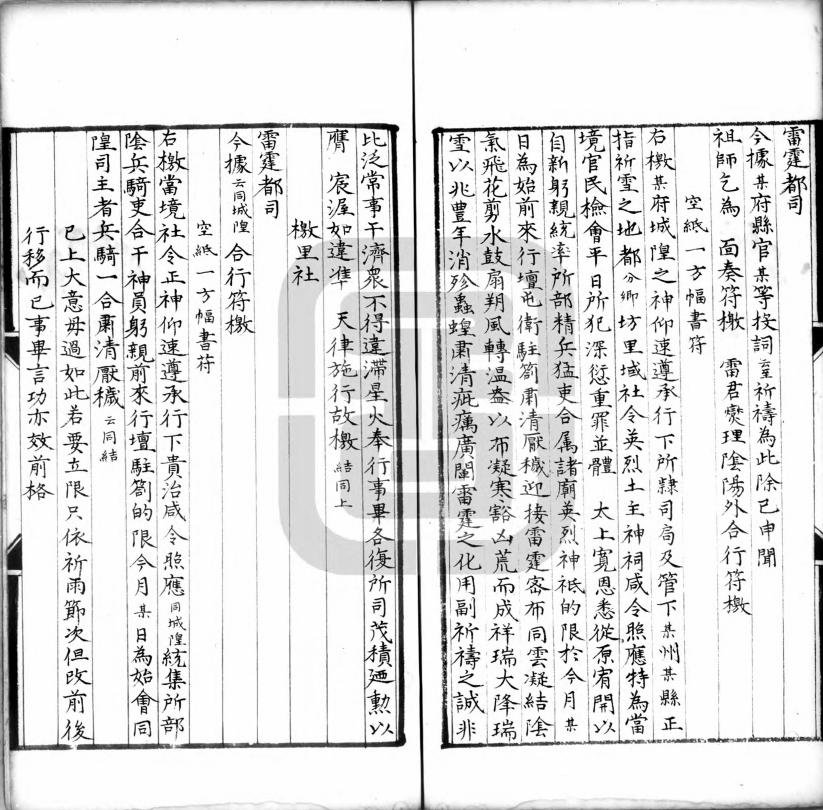 雷霆都司
今據某府縣官某等投詞云至祈禱為此除已申聞
祖師乞為　面奏符檄　雷君燮理陰陽外合行符檄
空紙一方幅書符
右檄某府城隍之神仰速遵承行下所隸司局及管下某州某縣正
指祈雪之地都分鄉坊里域社令英烈土主神祠咸令照應特為當
境官民檢會平日所犯深愆重罪並體　太上寬恩悉從原宥開以
自新躬親統率所部精兵猛吏合属諸廟英烈神祇的限於今月某
日為始前來行壇屯衛駐劄肅清厭穢迎接雷霆密布同雲凝結陰
氣飛花剪水鼓扇朔風轉溫燠以布凝寒豁凶荒而成祥瑞大降瑞
雪以兆豊年消殄蟲蝗肅清疵癘廣闡雷霆之化用副祈禱之誠非
此泛常事干濟衆不得違滯星火奉行事畢各復所司茂積廼勳以
膺　宸渥如違準　天律施行故檄結同上
檄里社
雷霆都司
今據云同城隍合行符檄
空紙一方幅書符
右檄當境社令正神仰速遵承行下貴治咸令照應同城隍統集所部
陰兵騎吏合干神員躬親前來行壇駐劄的限今月某日為始會同
隍司主者兵騎一合肅清厭穢云同結
已上大意毋過如此若要立限只依祈雨節次但改前後
行移而已事畢言功亦效前格